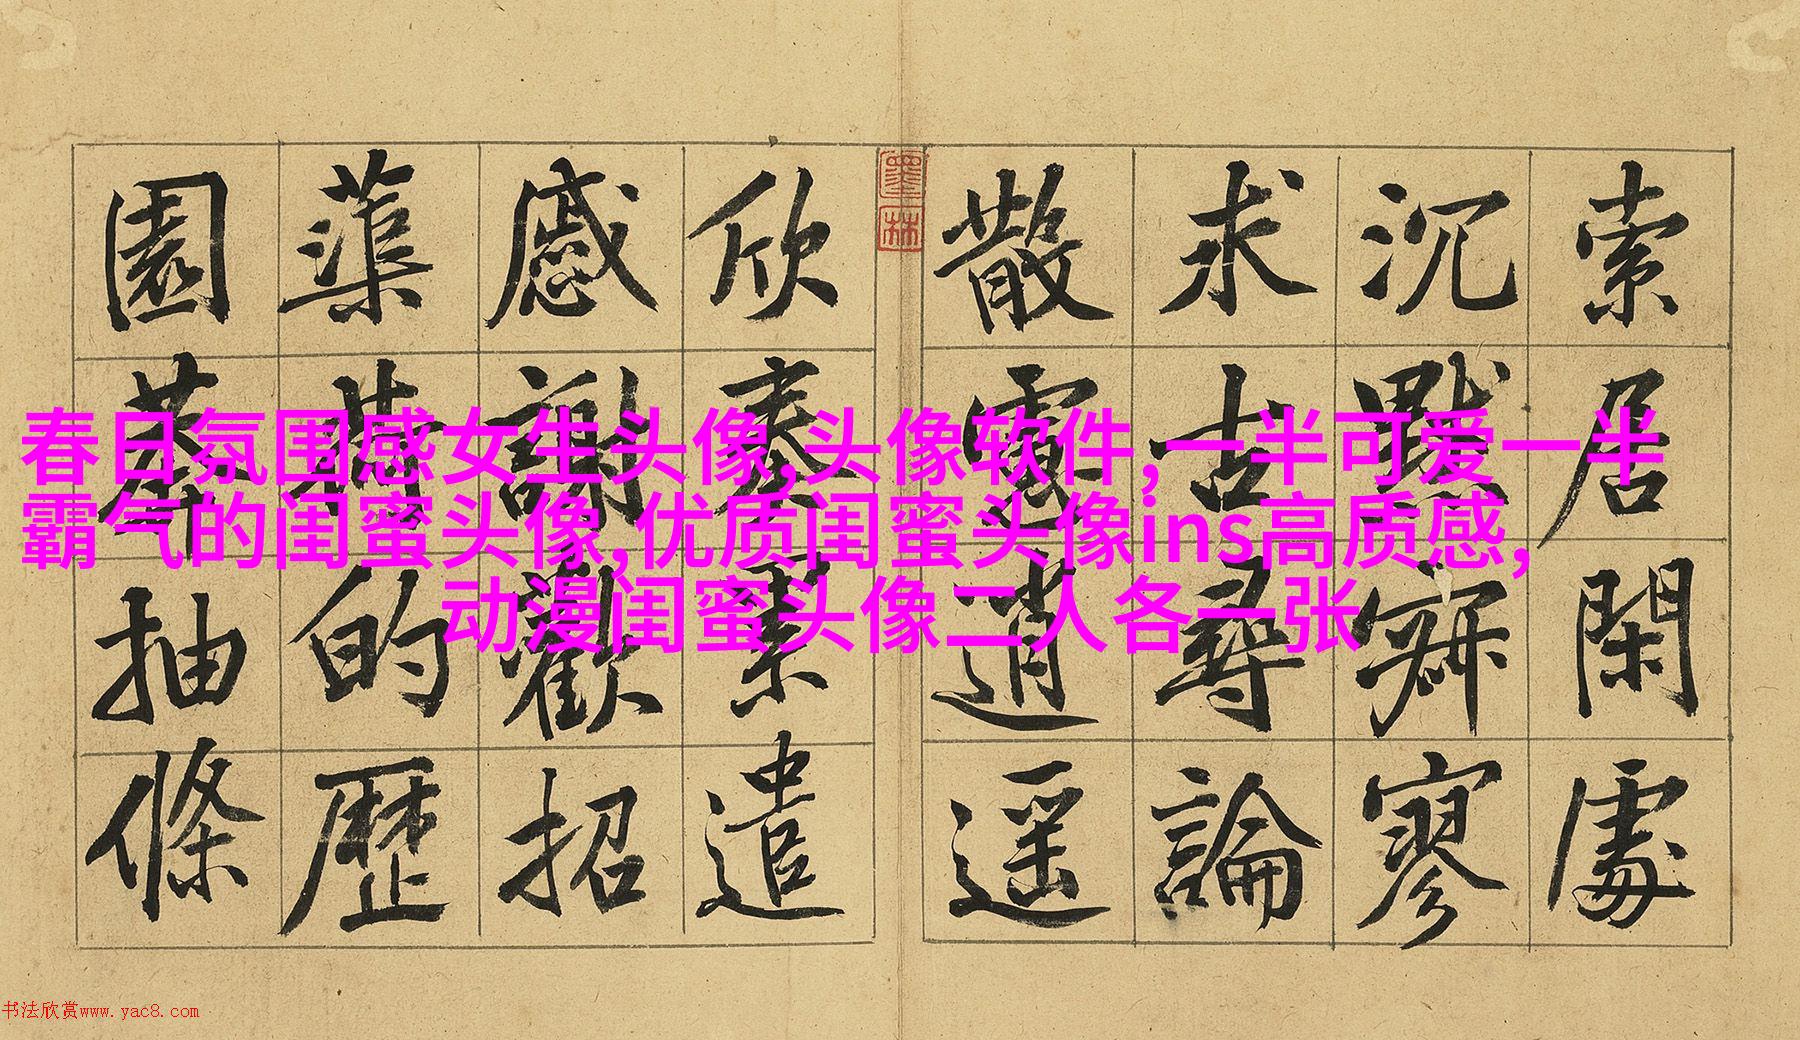 索居閑處
沉默寂寥
求古尋論
散慮逍遥
墨林
欣奏累遣
慼謝歡招
蕖荷的歷
園莽抽條
春日氛围感女生头像,头像软件,一半可爱一半
霸气的闺蜜头像,优质闺蜜头像ins高质感,
动漫闺蜜头像二人各一张
书法欣赏www.yac8.com